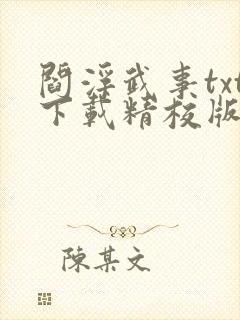 閻浮武事txt
下載精校版
陳某文